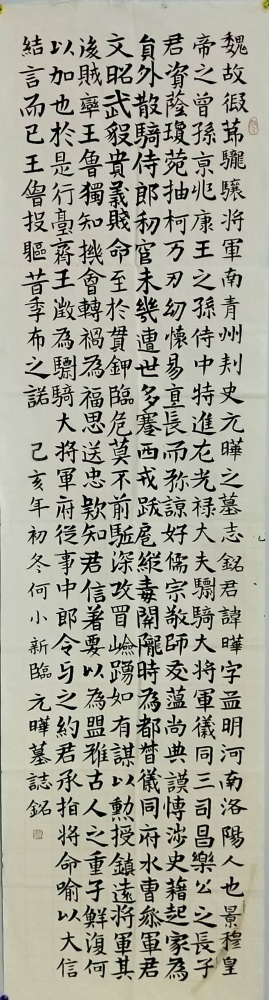 魏故假莭驪驤将軍南青州刾史元曄之墓志銘君諱曄字益明河南洛陽人也景穆皇
帝之曾孫京兆康王之孫侍中特進左光禄大夫驃騎大将軍儀同三司昌樂公之長子
君資蔭瓊苑抽柯万刃幼懷易直長而弥諒好儒宗敬師友蘊尚典謨慱涉史藉起家為
貟外散騎侍郎初官未幾遭世多蹇西戎跋扈縱毒關隴時為都督儀同府水曹叅軍君
文昭武毅貴義賤命至於贊鉀臨危莫不前駈深攻冒嶮踴如有謀以勲授鎮遠将軍其
後賊率王魯獨知機會轉禍為福思送忠欵知君信著要以為盟雅古人之重子鮮復何
以加也於是行臺齊王澂為驃騎大将軍府従事中郎令与之約君承指将命喻以大信
結言而已王魯投軀昔季布之諾
己亥年初冬何小新臨元曄墓誌銘